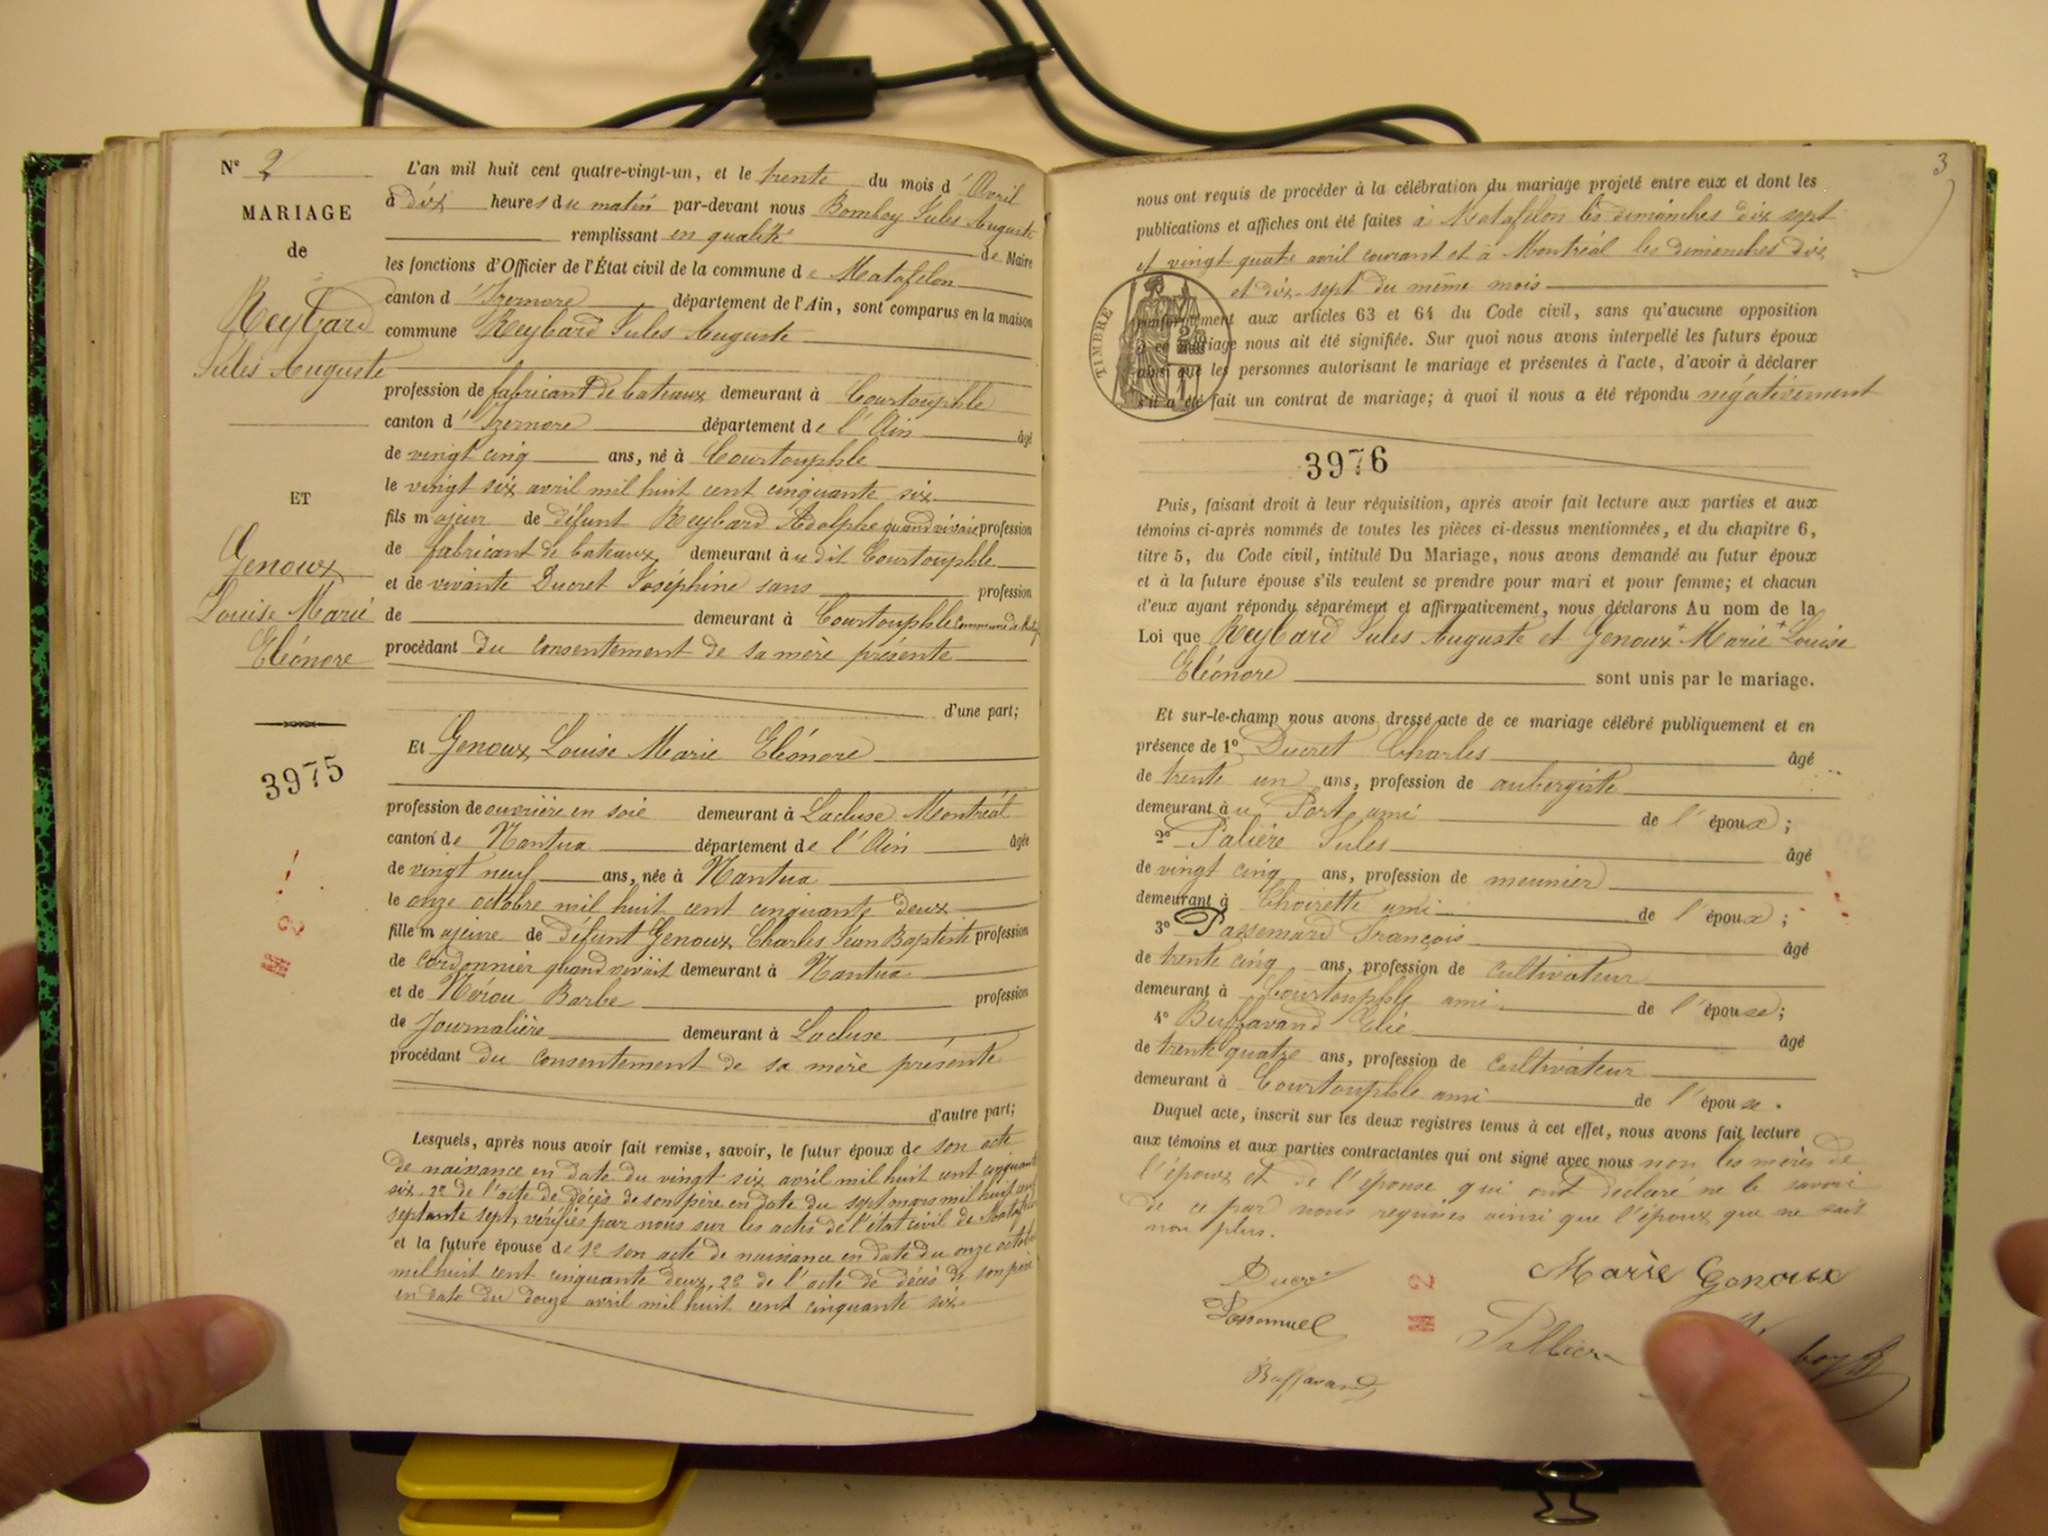 Nº 2
MARIAGE
de
Reybard
Jules Auguste
ET
Genoux
Louise Marie
Eléonore
3975
L'an mil huit cent quatre-vingt-un, et le trente du mois d'Avril
à dix heures du matin par-devant nous Bomboy Jules Auguste
remplissant en qualité de Maire
les fonctions d'Officier de l'État civil de la commune de Matafelon
canton d'Izernore département de l'Ain, sont comparus en la maison
commune Reybard Jules Auguste
profession de fabricant de bateaux demeurant à Courtouphle
canton d'Izernore département de l'Ain âgé
de vingt cinq ans, né à Courtouphle
le vingt six avril mil huit cent cinquante six
fils majeur de défunt Reybard Adolphe quand vivait profession
de fabricant de bateaux demeurant àu dit Courtouphle
et de vivante Ducret Joséphine sans profession
de demeurant à Courtouphle commune de
procédant du consentement de sa mère présente
d'une part;
Et Genoux Louise Marie Eléonore
profession de ouvrière en soie demeurant à Lacluse Montréal
canton de Nantua département de l'Ain âgée
de vingt neuf ans, née à Nantua
le onze octobre mil huit cent cinquante deux
fille majeure de défunt Genoux Charles Jean Baptiste profession
de cordonnier quand vivait demeurant à Nantua
et de Nérou Barbe profession
de Journalière demeurant à Lacluse
procédant du consentement de sa mère présente
d'autre part;
Lesquels, après nous avoir fait remise, savoir, le futur époux de son acte
de naissance en date du vingt six avril mil huit cent cinquante
six, 2º de l'acte de décès de son père en date du sept mars mil huit cent
septante sept, vérifiés par nous sur les actes de l'état civil de
et la future épouse de 1º son acte de naissance en date du onze octobre
mil huit cent cinquante deux, 2º de l'acte de décès de son père
en date du douze avril mil huit cent cinquante six
3
nous ont requis de procéder à la célébration du mariage projeté entre eux et dont les
publications et affiches ont été faites à Matafelon les dimanches dix sept
et vingt quatre avril courant et à Montréal les dimanches dix
et dix-sept du même mois
TIMBRE
conformément aux articles 63 et 64 du Code civil, sans qu'aucune opposition
à ce mariage nous ait été signifiée. Sur quoi nous avons interpellé les futurs époux
ainsi que les personnes autorisant le mariage et présentes à l'acte, d'avoir à déclarer
s'il a été fait un contrat de mariage; à quoi il nous a été répondu négativement
3976
Puis, faisant droit à leur réquisition, après avoir fait lecture aux parties et aux
témoins ci-après nommés de toutes les pièces ci-dessus mentionnées, et du chapitre 6,
titre 5, du Code civil, intitulé Du Mariage, nous avons demandé au futur époux
et à la future épouse s'ils veulent se prendre pour mari et pour femme; et chacun
d'eux ayant répondu séparément et affirmativement, nous déclarons Au nom de la
Loi que Reybard Jules Auguste et Genoux + Marie + Louise
Eléonore sont unis par le mariage.
Et sur-le-champ nous avons dressé acte de ce mariage célébré publiquement et en
présence de 1º Ducret Charles âgé
de trente un ans, profession de aubergiste
demeurant àu Port ami de l'époux;
2º Palière Jules âgé
de vingt cinq ans, profession de meunier
demeurant à Thoirette ami de l'époux;
3º Passemard François âgé
de trente cinq ans, profession de cultivateur
demeurant à Courtouphle ami de l'épouse;
4º Buffavand Elie âgé
de trente quatre ans, profession de cultivateur
demeurant à Courtouphle ami de l'épouse.
Duquel acte, inscrit sur les deux registres tenus à cet effet, nous avons fait lecture
aux témoins et aux parties contractantes qui ont signé avec nous non les mères de
l'époux et de l'épouse qui ont déclaré ne le savoir
de ce par nous requises ainsi que l'époux que ne sait
non plus.
Marie Genoux
Buffavand